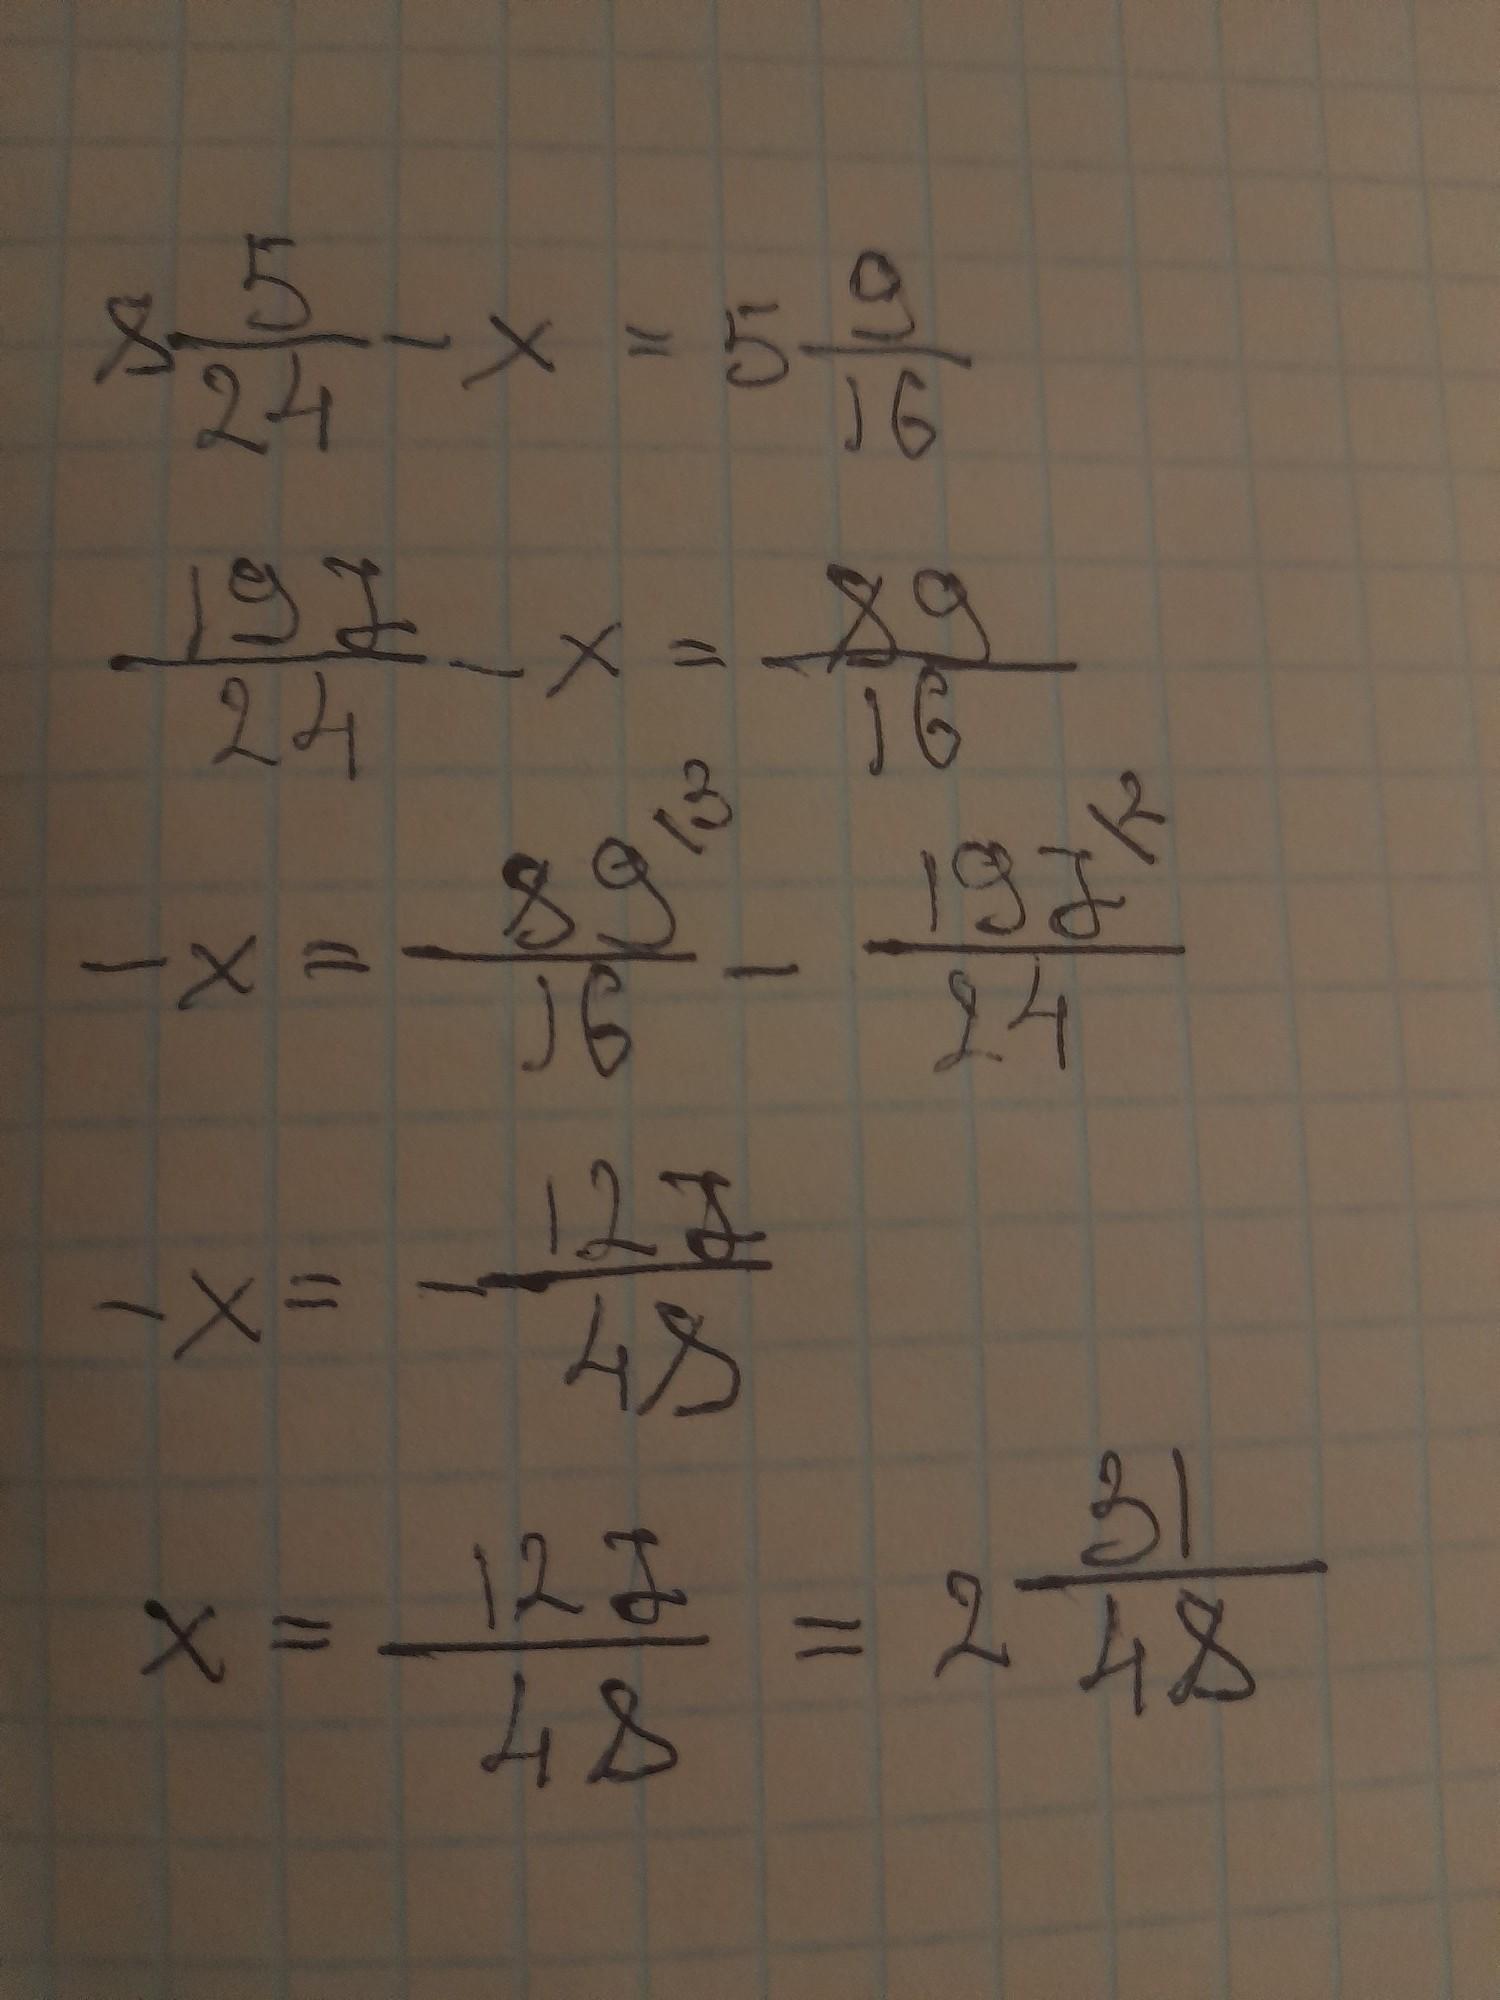 8 5/24 - x = 5 9/16
197/24 - x = 89/16
-x = 89\3/16 - 197\2/24
-x = -127/48
x = 127/48 = 2 31/48